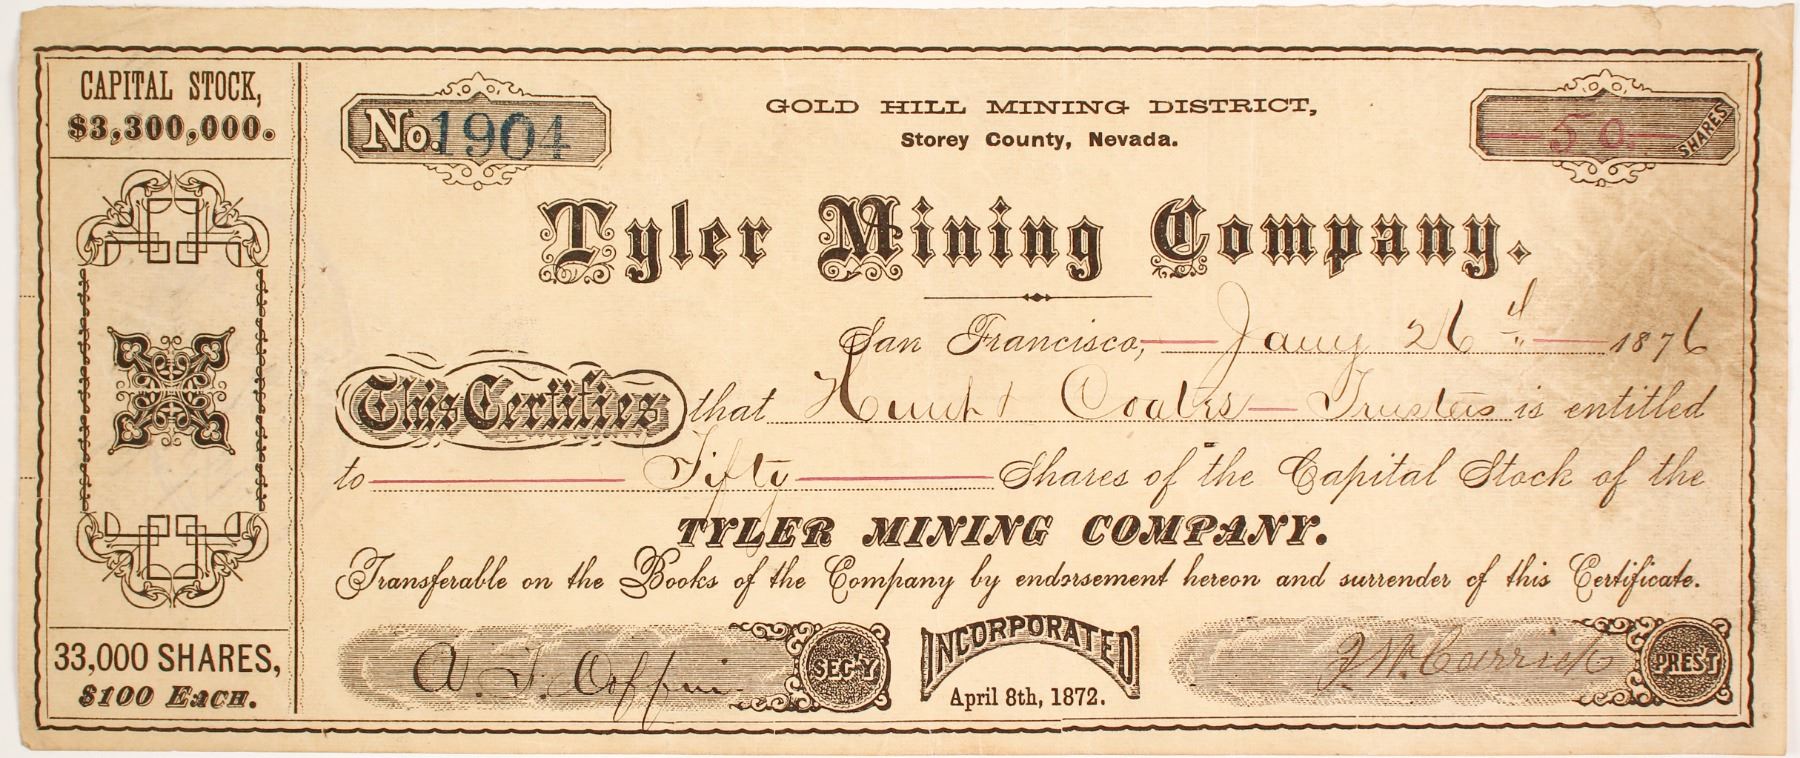 CAPITAL STOCK,
$3,300,000.
33,000 SHARES,
$100 EACH.
No. 1904
GOLD HILL MINING DISTRICT,
Storey County, Nevada.
50 SHARES
Tyler Mining Company.
San Francisco, Jany 26th 1876
This Certifies that & Coates Trustees is entitled
to Fifty Shares of the Capital Stock of the
TYLER MINING COMPANY.
Transferable on the Books of the Company by endorsement hereon and surrender of this Certificate.
SEC'Y
INCORPORATED
April 8th, 1872.
PREST